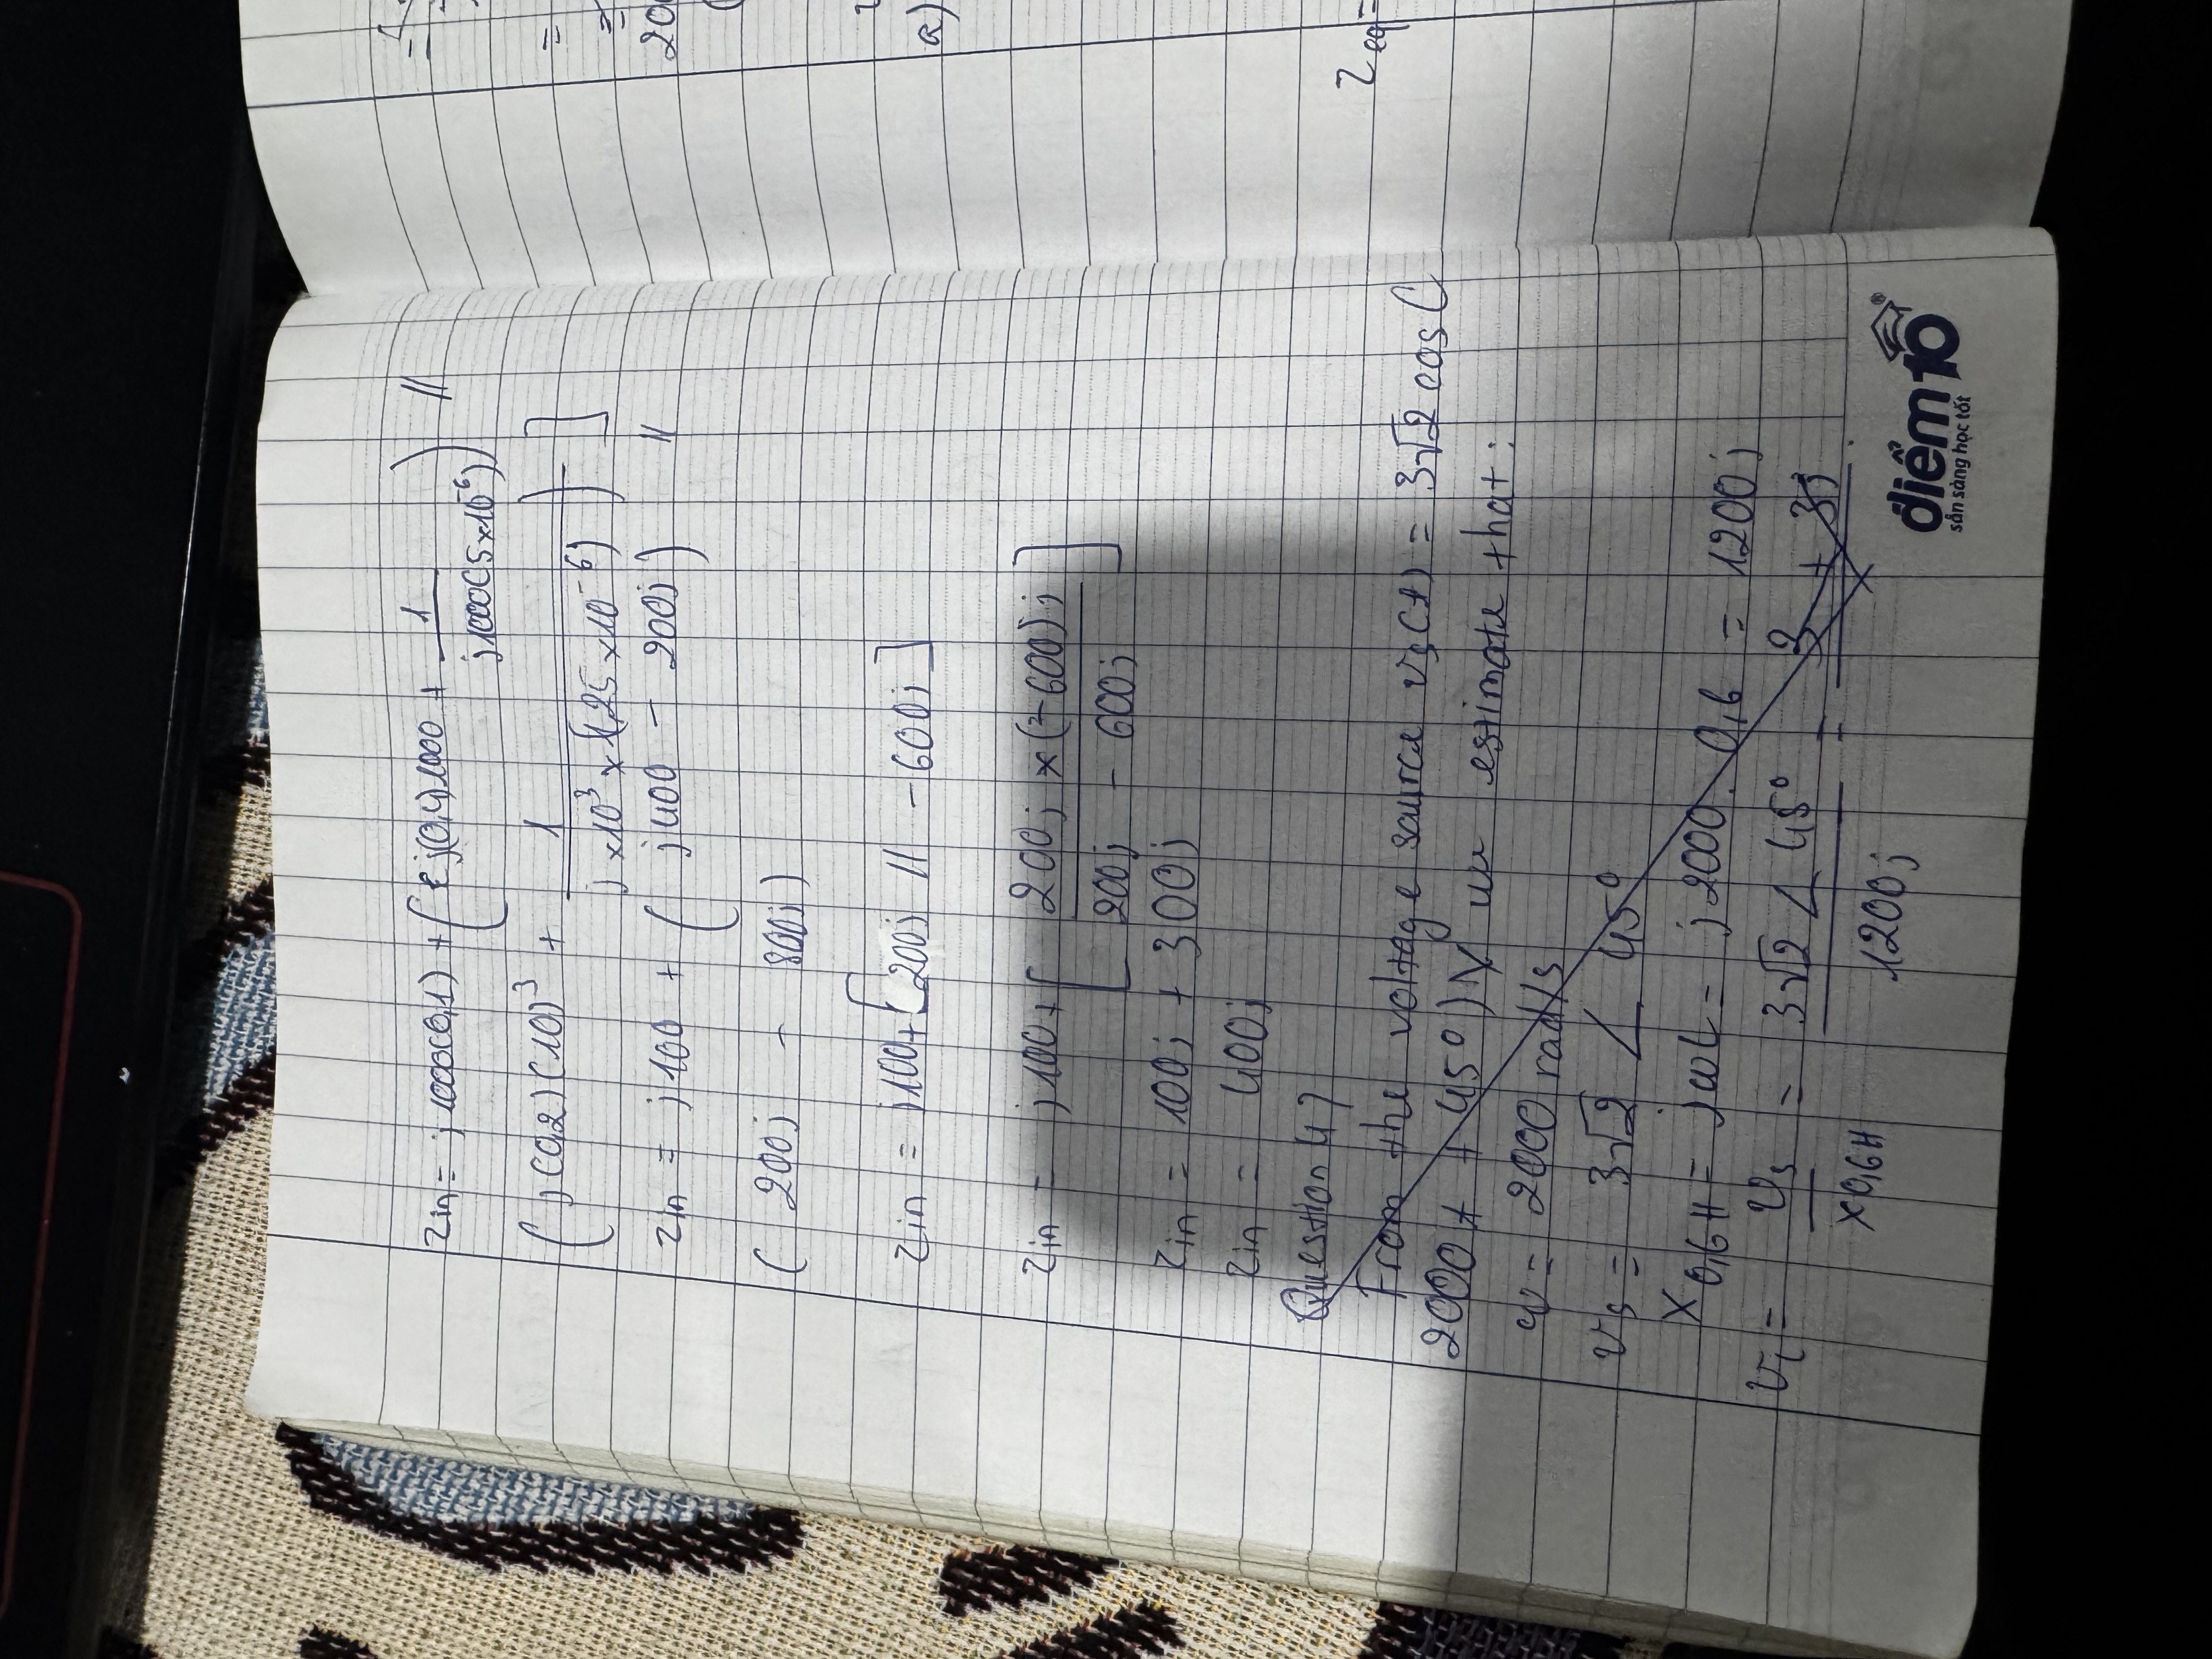 Zin = j1000(0,1) + [ ( j(0,4)1000 + 1 / j1000(5×10^-6) ) //
( j(0,2)(10)^3 + 1 / j×10^3×(1,25×10^-6) ) ]
Zin = j100 + ( j400 - 200j ) //
( 200j - 800j )
Zin = j100 + [ 200j // -600j ]
Zin = j100 + [ 200j × (-600)j / 200j - 600j ]
Zin = 100j + 300j
Zin = 400j
Question 4)
From the voltage source vs(t) = 3√2 cos(
2000t + 45°) V we estimate that:
ω = 2000 rad/s
vs = 3√2 ∠ 45°
X0,6H = jωL = j2000. 0,6 = 1200j
= vs / X0,6H = 3√2 ∠ 45° / 1200j = 3 + 3j
điểm10®
sẵn sàng học tốt
=
=
=
20
a)
Zeq=